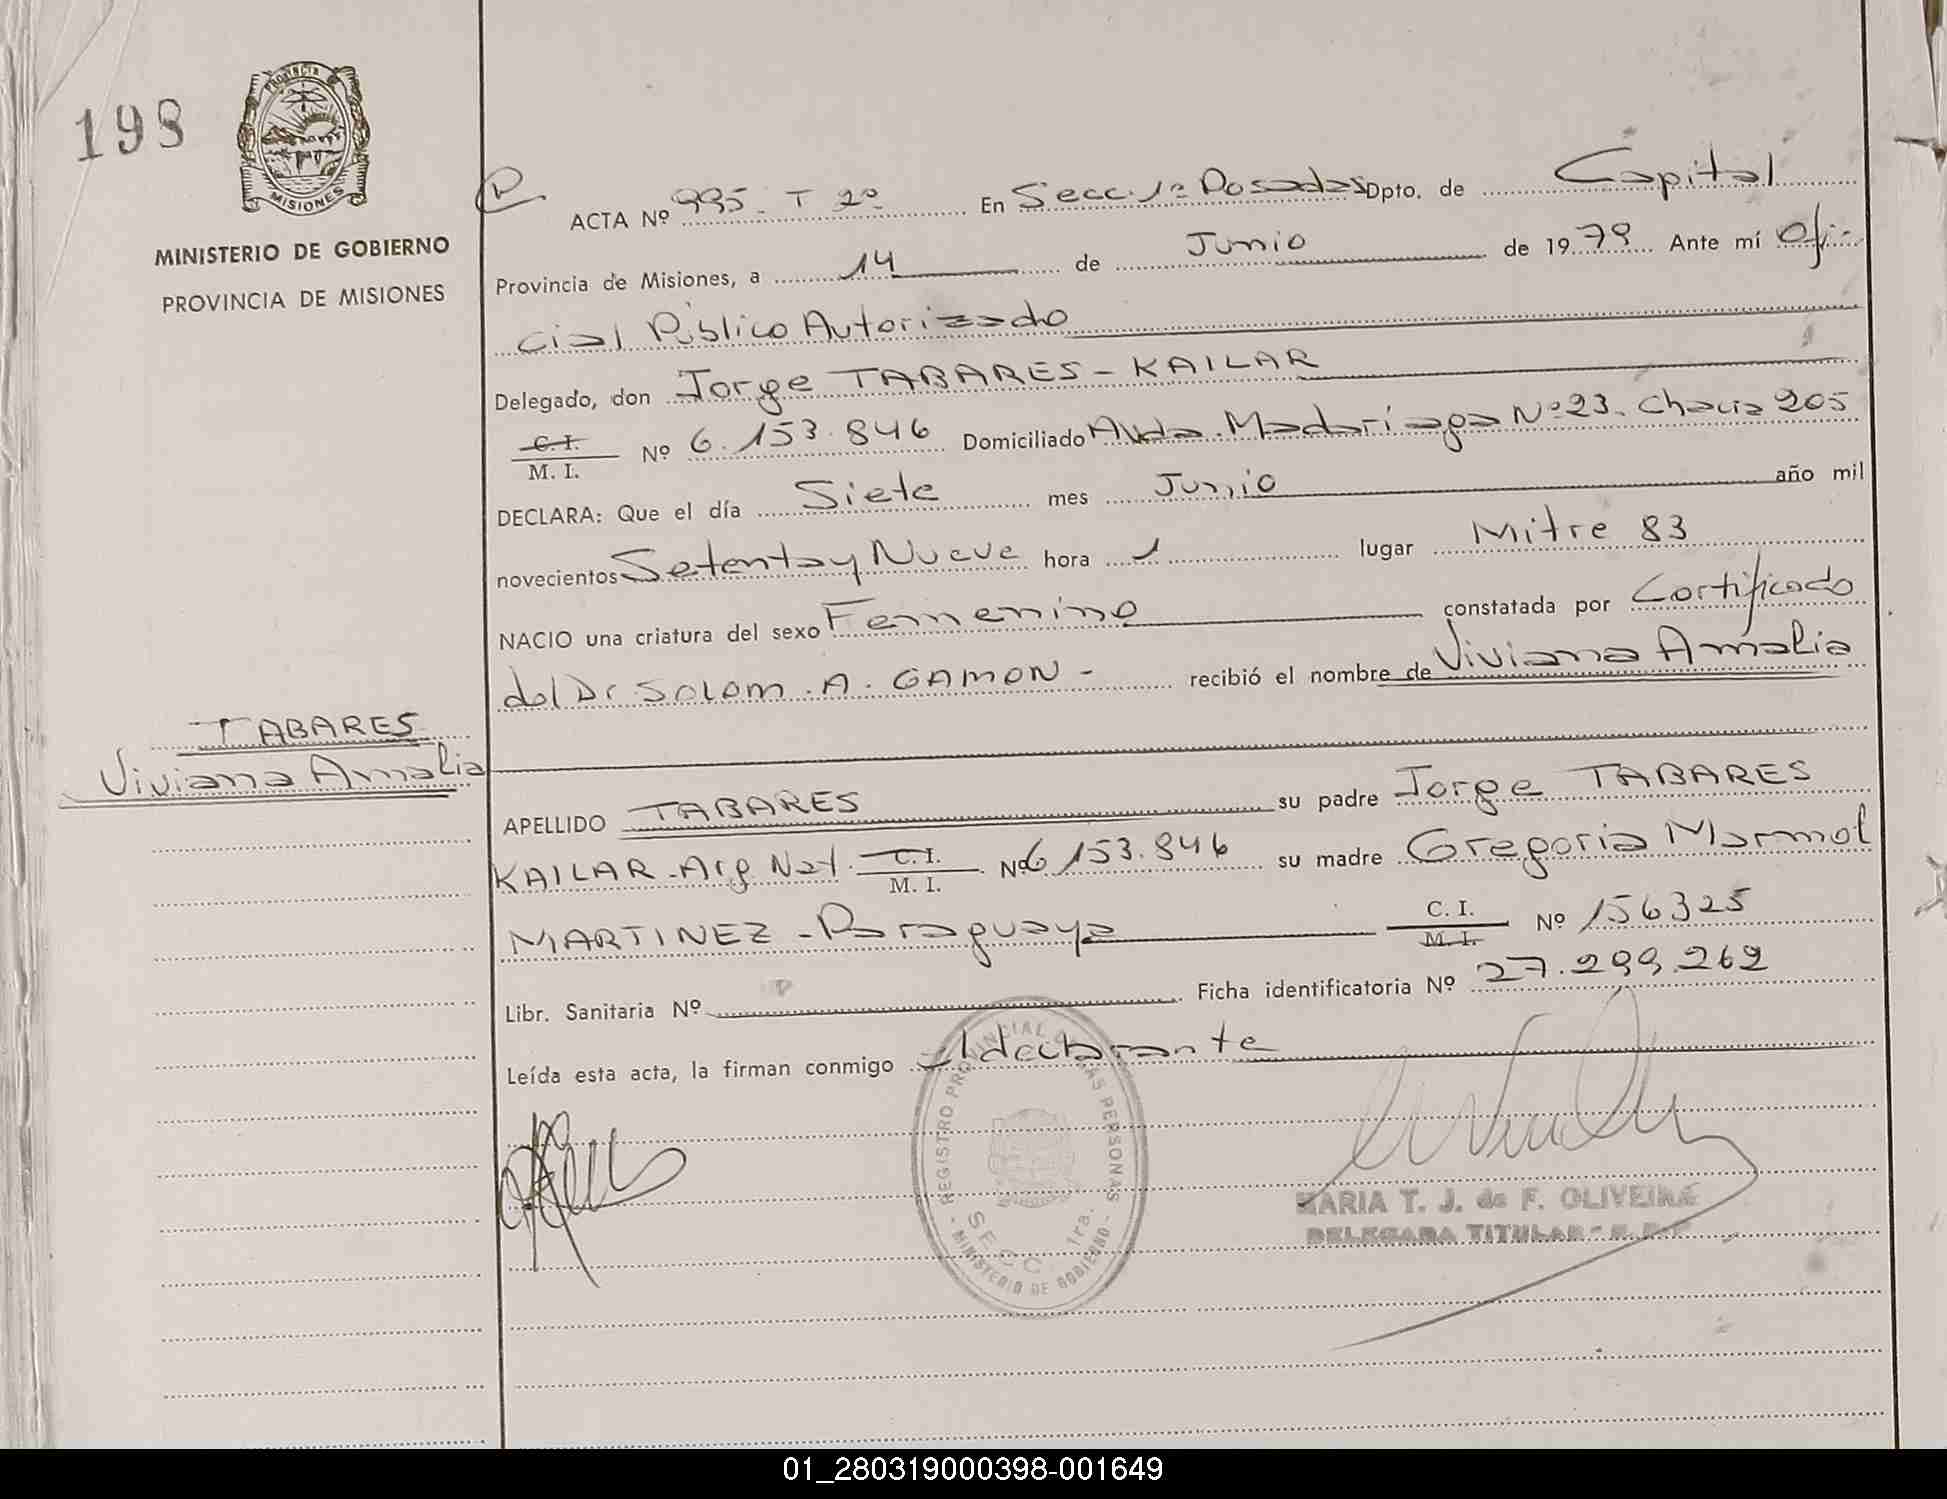 198
PROVINCIA
MISIONES
MINISTERIO DE GOBIERNO
PROVINCIA DE MISIONES
ACTA Nº 995 - T 2º En Secc. 1ª Posadas Dpto. de Capital
Provincia de Misiones, a 14 de Junio de 1979 Ante mí Ofi-
cial Público Autorizado
Delegado, don Jorge TABARES - KAILAR
C. I.
M. I. Nº 6.153.846 Domiciliado Avda. Madariaga Nº 23. Chacra 205
DECLARA: Que el día Siete mes Junio año mil
novecientos Setenta y Nueve hora 1 lugar Mitre 83
NACIO una criatura del sexo Femenino constatada por Certificado
del Dr. SOLOM. A. GAMON - recibió el nombre de Viviana Amalia
TABARES
Viviana Amalia
APELLIDO TABARES su padre Jorge TABARES
KAILAR - Arg. Nat. C. I. M. I. Nº 6 153.846 su madre Gregoria Marmol
MARTINEZ - Paraguaya C. I. M. I. Nº 156325
Libr. Sanitaria Nº Ficha identificatoria Nº 27.299.262
Leída esta acta, la firman conmigo el declarante
REGISTRO PROVINCIAL DE LAS PERSONAS
SECC. 1ra.
- MINISTERIO DE GOBIERNO -
MARIA T. J. de F. OLIVEIRA
DELEGADA TITULAR - R. P. P.
01_280319000398-001649